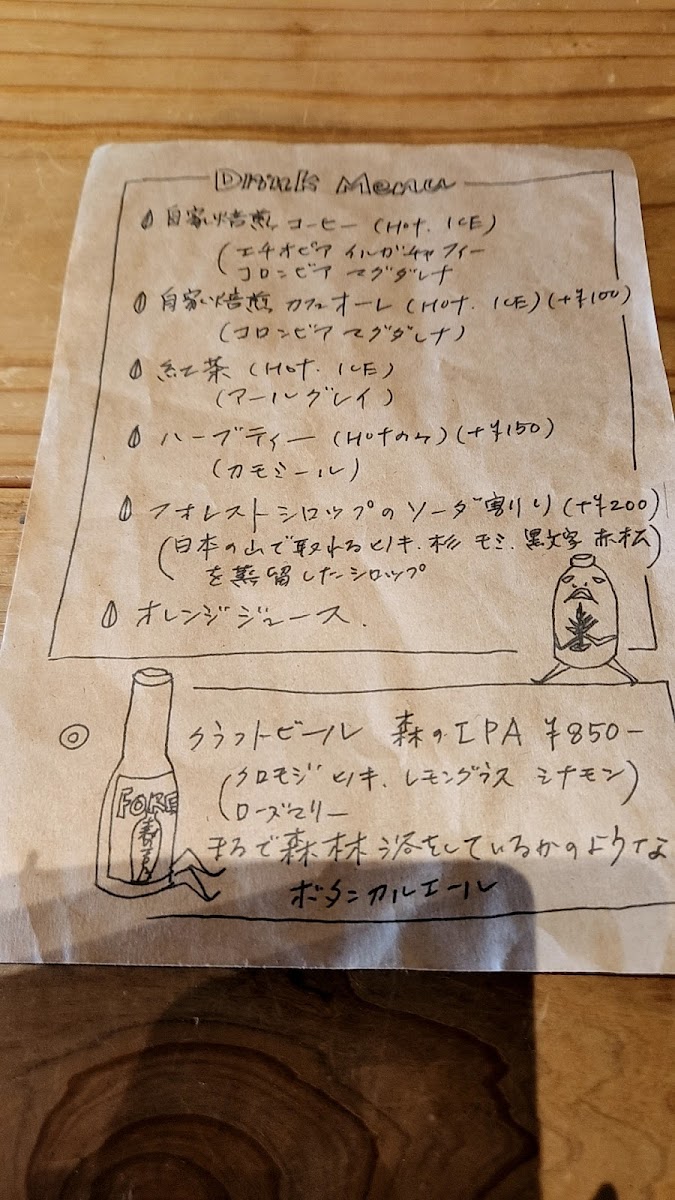 Drink Menu
自家焙煎 コーヒー (HOT. ICE)
(エチオピア イルガチャフィー
コロンビア マグダレナ
自家焙煎 カフェオーレ (HOT. ICE) (+¥100)
(コロンビア マグダレナ)
紅茶 (HOT. ICE)
(アールグレイ)
ハーブティー (HOTのみ) (+¥150)
(カモミール)
フォレストシロップのソーダ割り (+¥200)
(日本の山で取れるヒノキ.杉 モミ.黒文字 赤松)
を蒸留したシロップ
オレンジジュース.
クラフトビール 森のIPA ¥850-
(クロモジ ヒノキ.レモングラス シナモン)
ローズマリー
FORE
まるで森林浴をしているかのような
ボタニカルエール